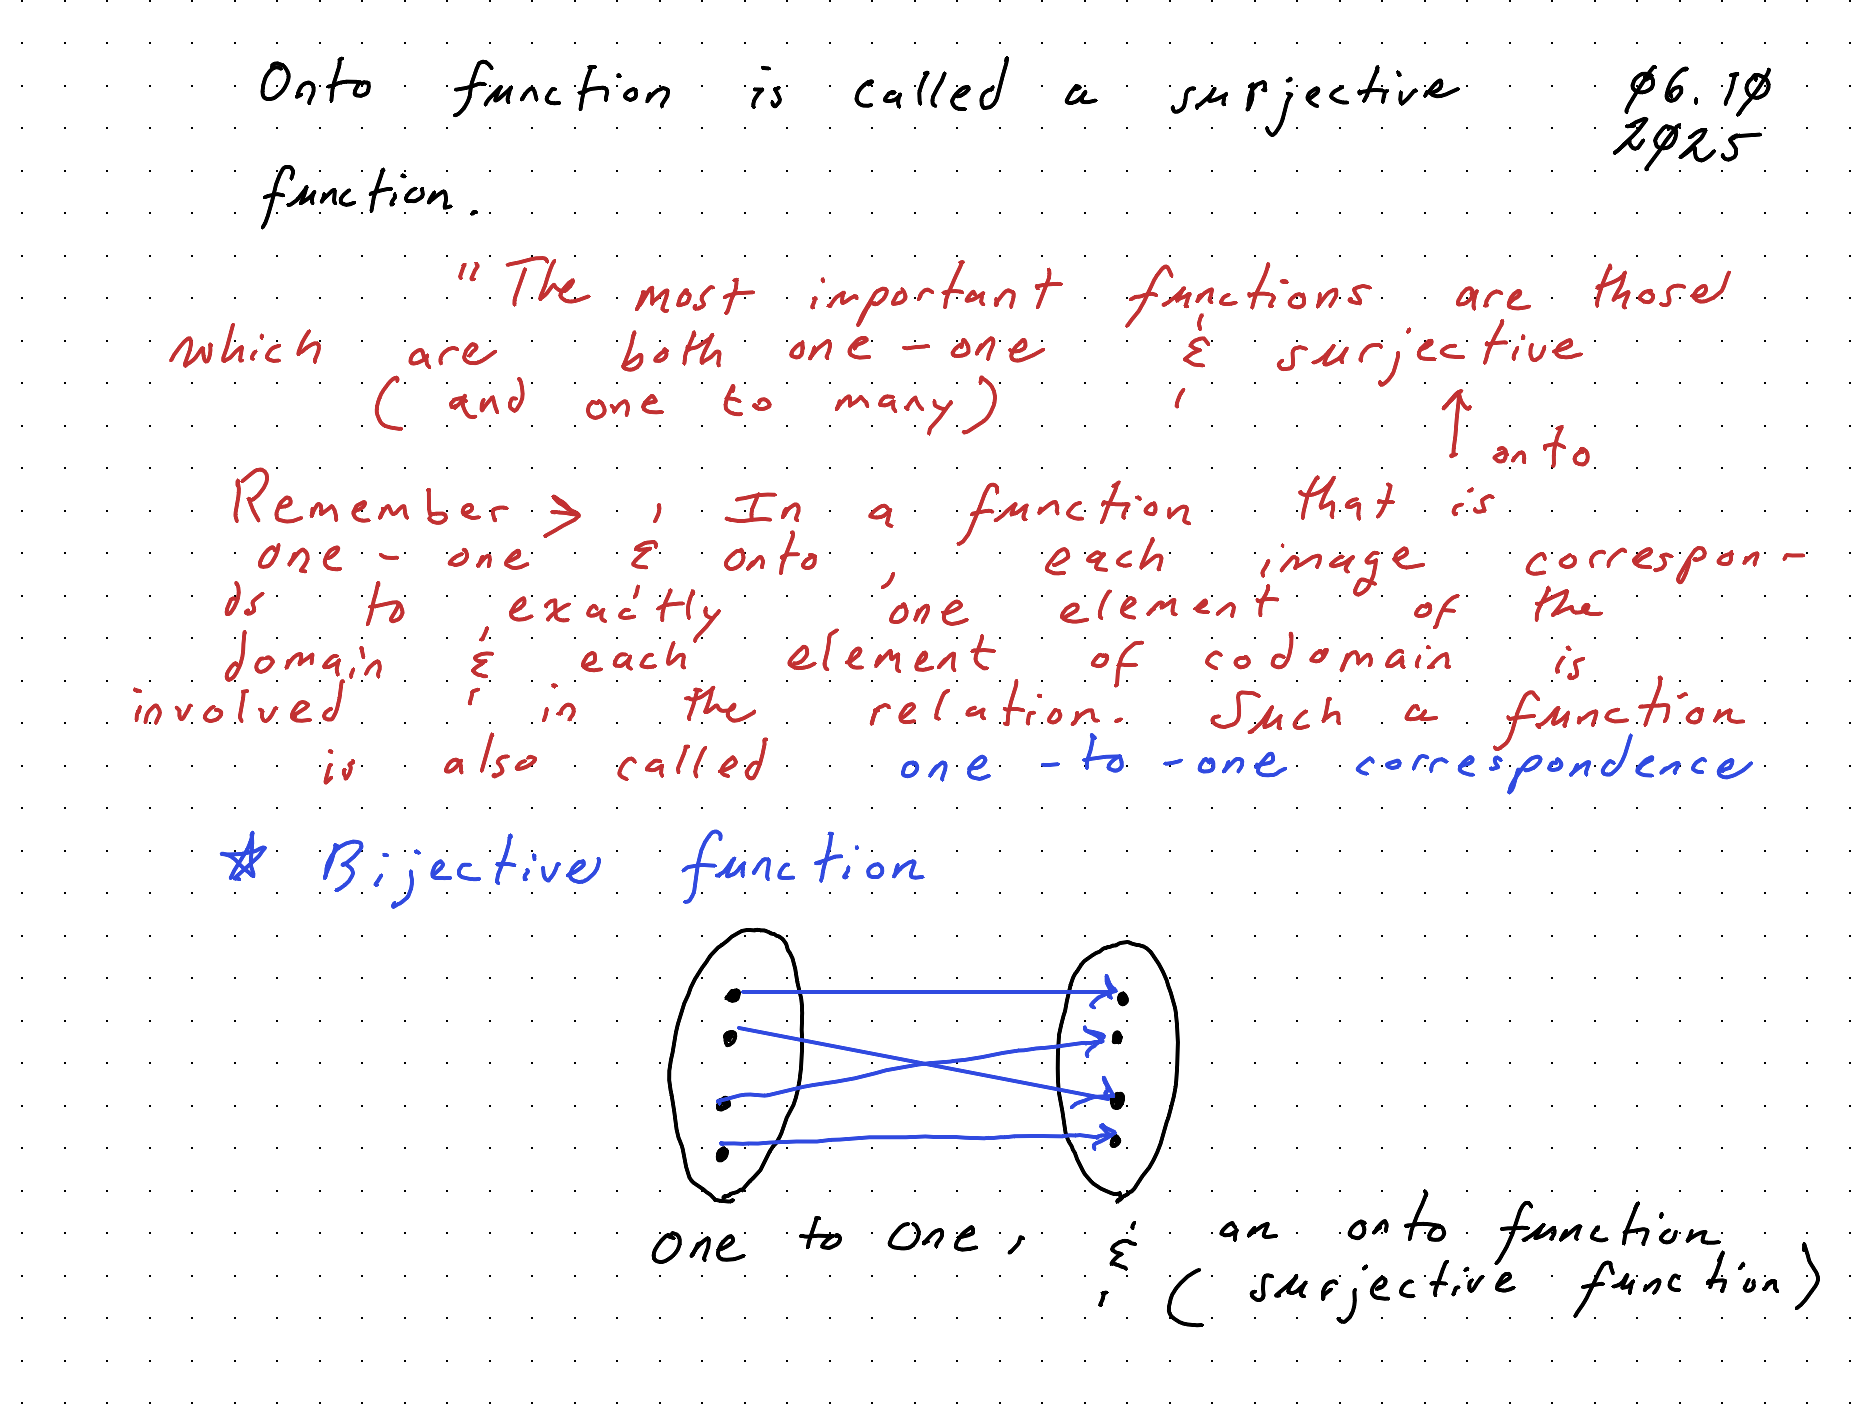 Onto function is called a surjective
06.10
2025
function.
"The most important functions are those
which are both one-one & surjective
(and one to many)
onto
Remember > , In a function that is
one-one & onto, each image correspon-
ds to exactly one element of the
domain & each element of codomain is
involved in the relation. Such a function
is also called one-to-one correspondence
☆ Bijective function
one to one, & an onto function
(surjective function)